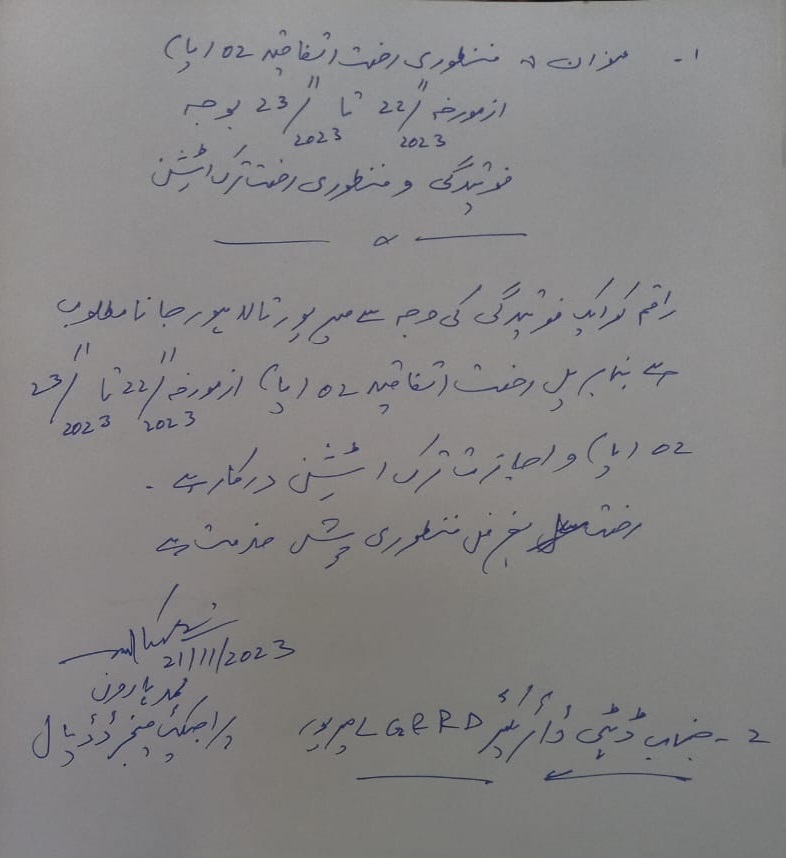 1- عنوان :- منظوری رخصت اتفاقیہ 02 ایام
ازمورخہ 22/11/2023 تا 23/11/2023 بوجہ
فوتیدگی و منظوری رخصت ترک اسٹیشن
راقم کو ایک فوتیدگی کی وجہ سے میرپور تا لاہور جانا مطلوب
ہے بنابریں رخصت اتفاقیہ 02 ایام ازمورخہ 22/11/2023 تا 23/11/2023
02 ایام و اجازت ترک اسٹیشن درکار ہے -
رخصت بغرض منظوری پیش خدمت ہے
21/11/2023
محمد ہارون
پراجیکٹ منیجر ڈڈیال
2- جناب ڈپٹی ڈائریکٹر LG&RD میرپور